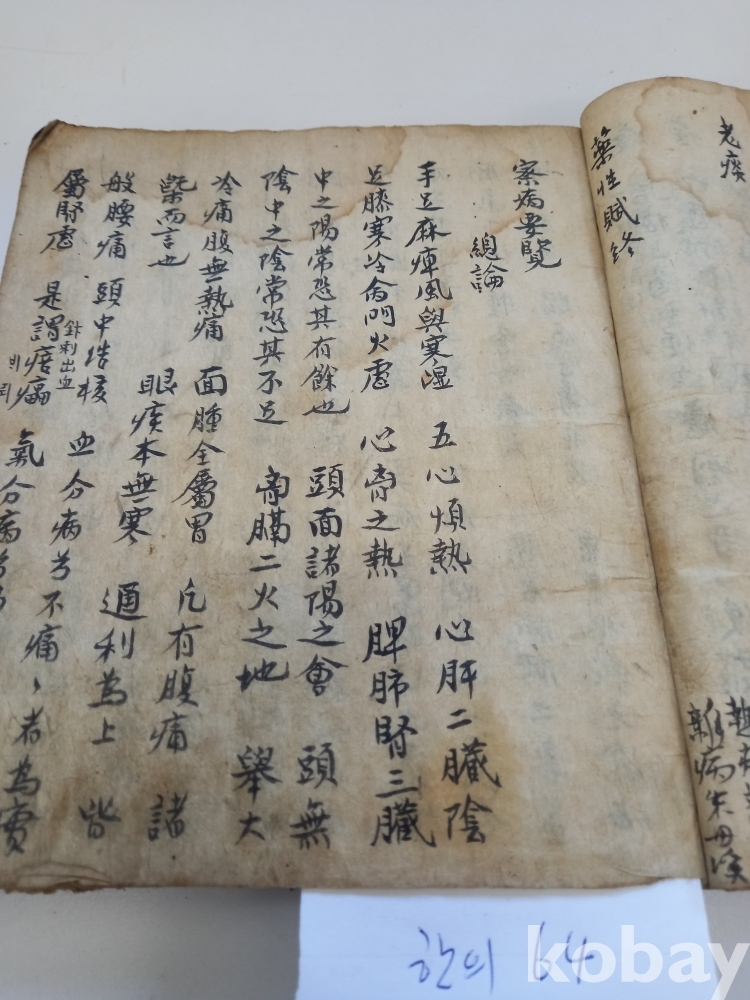 老痰
藥性賦終
雜病朱丹溪
察病要覽
總論
手足麻痺風與寒湿 五心煩熱 心肝二臟陰
足膝寒冷命門火虛 心膏之熱 脾肺腎三臟
中之陽常恐其有餘也 頭面諸陽之會 頭無
陰中之陰常恐其不足 膈二火之地 舉大
冷痛腹無熱痛 面腫全屬胃 凡有腹痛 諸
槩而言也 眼疾本無寒 通利為上 皆
般腰痛 頭中结核 血分病兮不痛、者為實
針刺出血
屬肾虛 是謂 氣分病兮
한의 64
kobay